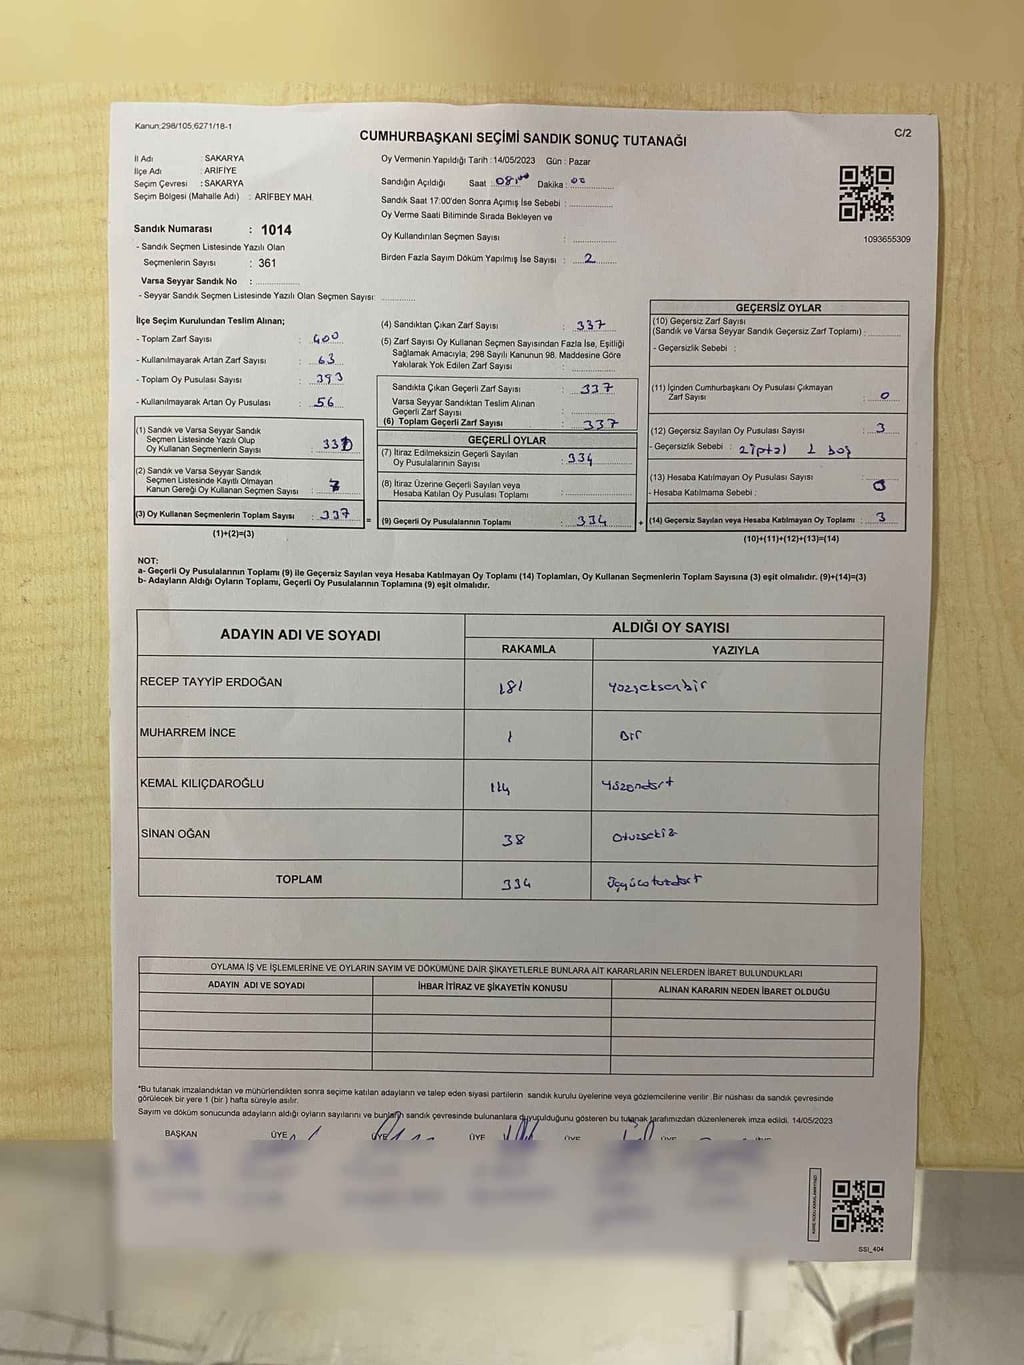 Kanun:298/105,6271/18-1
C/2
CUMHURBAŞKANI SEÇİMİ SANDIK SONUÇ TUTANAĞI
İl Adı : SAKARYA
İlçe Adı : ARİFİYE
Seçim Çevresi : SAKARYA
Seçim Bölgesi (Mahalle Adı) : ARİFBEY MAH.
Sandık Numarası : 1014
- Sandık Seçmen Listesinde Yazılı Olan
Seçmenlerin Sayısı : 361
Varsa Seyyar Sandık No :
- Seyyar Sandık Seçmen Listesinde Yazılı Olan Seçmen Sayısı:
Oy Vermenin Yapıldığı Tarih : 14/05/2023 Gün : Pazar
Sandığın Açıldığı Saat : 08:00 Dakika : 00
Sandık Saat 17:00'den Sonra Açımış İse Sebebi :
Oy Verme Saati Bitiminde Sırada Bekleyen ve
Oy Kullandırılan Seçmen Sayısı :
Birden Fazla Sayım Döküm Yapılmış İse Sayısı : 2
1093655309
İlçe Seçim Kurulundan Teslim Alınan;
- Toplam Zarf Sayısı : 400
- Kullanılmayarak Artan Zarf Sayısı : 63
- Toplam Oy Pusulası Sayısı : 393
- Kullanılmayarak Artan Oy Pusulası : 56
(1) Sandık ve Varsa Seyyar Sandık
Seçmen Listesinde Yazılı Olup
Oy Kullanan Seçmenlerin Sayısı :
(2) Sandık ve Varsa Seyyar Sandık
Seçmen Listesinde Kayıtlı Olmayan
Kanun Gereği Oy Kullanan Seçmen Sayısı :
(3) Oy Kullanan Seçmenlerin Toplam Sayısı : 337
(1)+(2)=(3)
(4) Sandıktan Çıkan Zarf Sayısı : 337
(5) Zarf Sayısı Oy Kullanan Seçmen Sayısından Fazla İse, Eşitliği
Sağlamak Amacıyla, 298 Sayılı Kanunun 98. Maddesine Göre
Yakılarak Yok Edilen Zarf Sayısı :
Sandıkta Çıkan Geçerli Zarf Sayısı : 337
Varsa Seyyar Sandıktan Teslim Alınan
Geçerli Zarf Sayısı :
(6) Toplam Geçerli Zarf Sayısı : 337
GEÇERLİ OYLAR
(7) İtiraz Edilmeksizin Geçerli Sayılan
Oy Pusulalarının Sayısı : 334
(8) İtiraz Üzerine Geçerli Sayılan veya
Hesaba Katılan Oy Pusulası Toplamı :
= (9) Geçerli Oy Pusulalarının Toplamı : 334 +
GEÇERSİZ OYLAR
(10) Geçersiz Zarf Sayısı
(Sandık ve Varsa Seyyar Sandık Geçersiz Zarf Toplamı) :
- Geçersizlik Sebebi :
(11) İçinden Cumhurbaşkanı Oy Pusulası Çıkmayan
Zarf Sayısı : 0
(12) Geçersiz Sayılan Oy Pusulası Sayısı : 3
- Geçersizlik Sebebi : 2 iptal 1 boş
(13) Hesaba Katılmayan Oy Pusulası Sayısı : 0
- Hesaba Katılmama Sebebi :
(14) Geçersiz Sayılan veya Hesaba Katılmayan Oy Toplamı : 3
(10)+(11)+(12)+(13)=(14)
NOT:
a- Geçerli Oy Pusulalarının Toplamı (9) ile Geçersiz Sayılan veya Hesaba Katılmayan Oy Toplamı (14) Toplamları, Oy Kullanan Seçmenlerin Toplam Sayısına (3) eşit olmalıdır. (9)+(14)=(3)
b- Adayların Aldığı Oyların Toplamı, Geçerli Oy Pusulalarının Toplamına (9) eşit olmalıdır.
ADAYIN ADI VE SOYADI ALDIĞI OY SAYISI
RAKAMLA YAZIYLA
RECEP TAYYİP ERDOĞAN 181 Yüzseksenbir
MUHARREM İNCE 1 Bir
KEMAL KILIÇDAROĞLU 114 Yüzondört
SİNAN OĞAN 38 Otuzsekiz
TOPLAM 334 Üçyüzotuzdört
OYLAMA İŞ VE İŞLEMLERİNE VE OYLARIN SAYIM VE DÖKÜMÜNE DAİR ŞİKAYETLERLE BUNLARA AİT KARARLARIN NELERDEN İBARET BULUNDUKLARI
ADAYIN ADI VE SOYADI İHBAR İTİRAZ VE ŞİKAYETİN KONUSU ALINAN KARARIN NEDEN İBARET OLDUĞU
*Bu tutanak imzalandıktan ve mühürlendikten sonra seçime katılan adayların ve talep eden siyasi partilerin sandık kurulu üyelerine veya gözlemcilerine verilir. Bir nüshası da sandık çevresinde
görülecek bir yere 1 (bir ) hafta süreyle asılır.
Sayım ve döküm sonucunda adayların aldığı oyların sayılarını ve bunların sandık çevresinde bulunanlara duyurulduğunu gösteren bu tutanak tarafımızdan düzenlenerek imza edildi. 14/05/2023
BAŞKAN ÜYE ÜYE ÜYE ÜYE ÜYE ÜYE
SSI_404